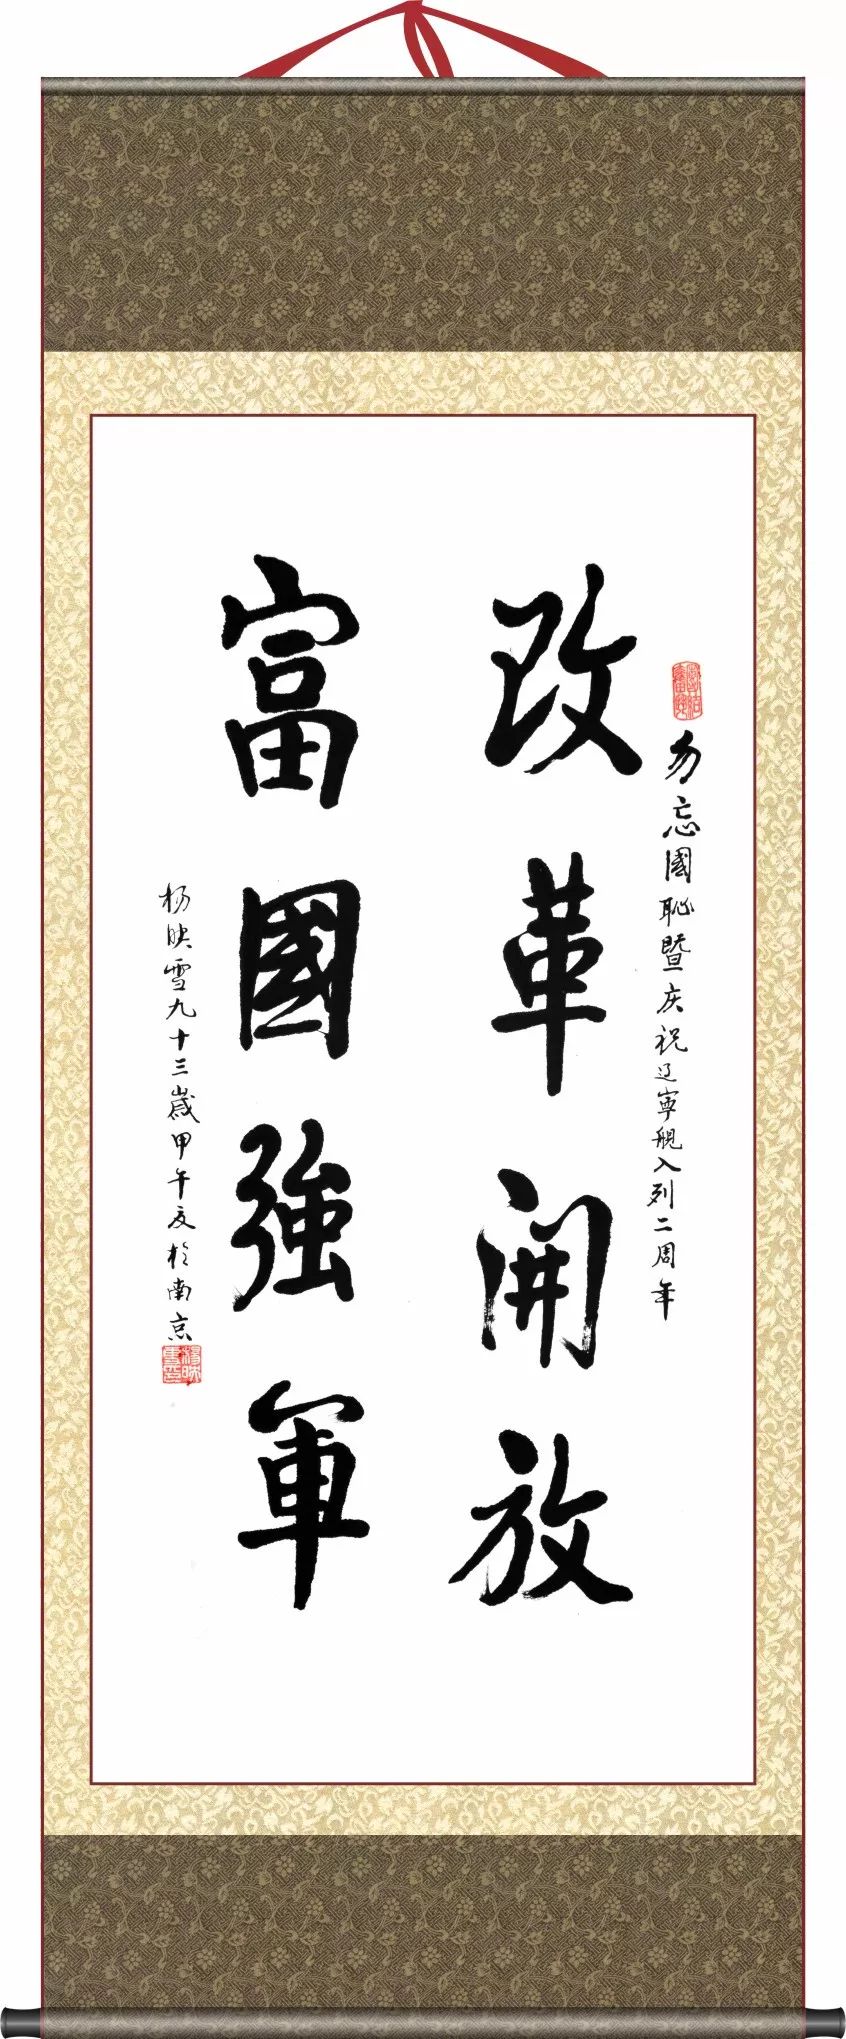 勿忘國恥暨庆祝辽寧舰入列二周年
改革開放
富國強軍
杨映雪九十三歲甲午夏於南京